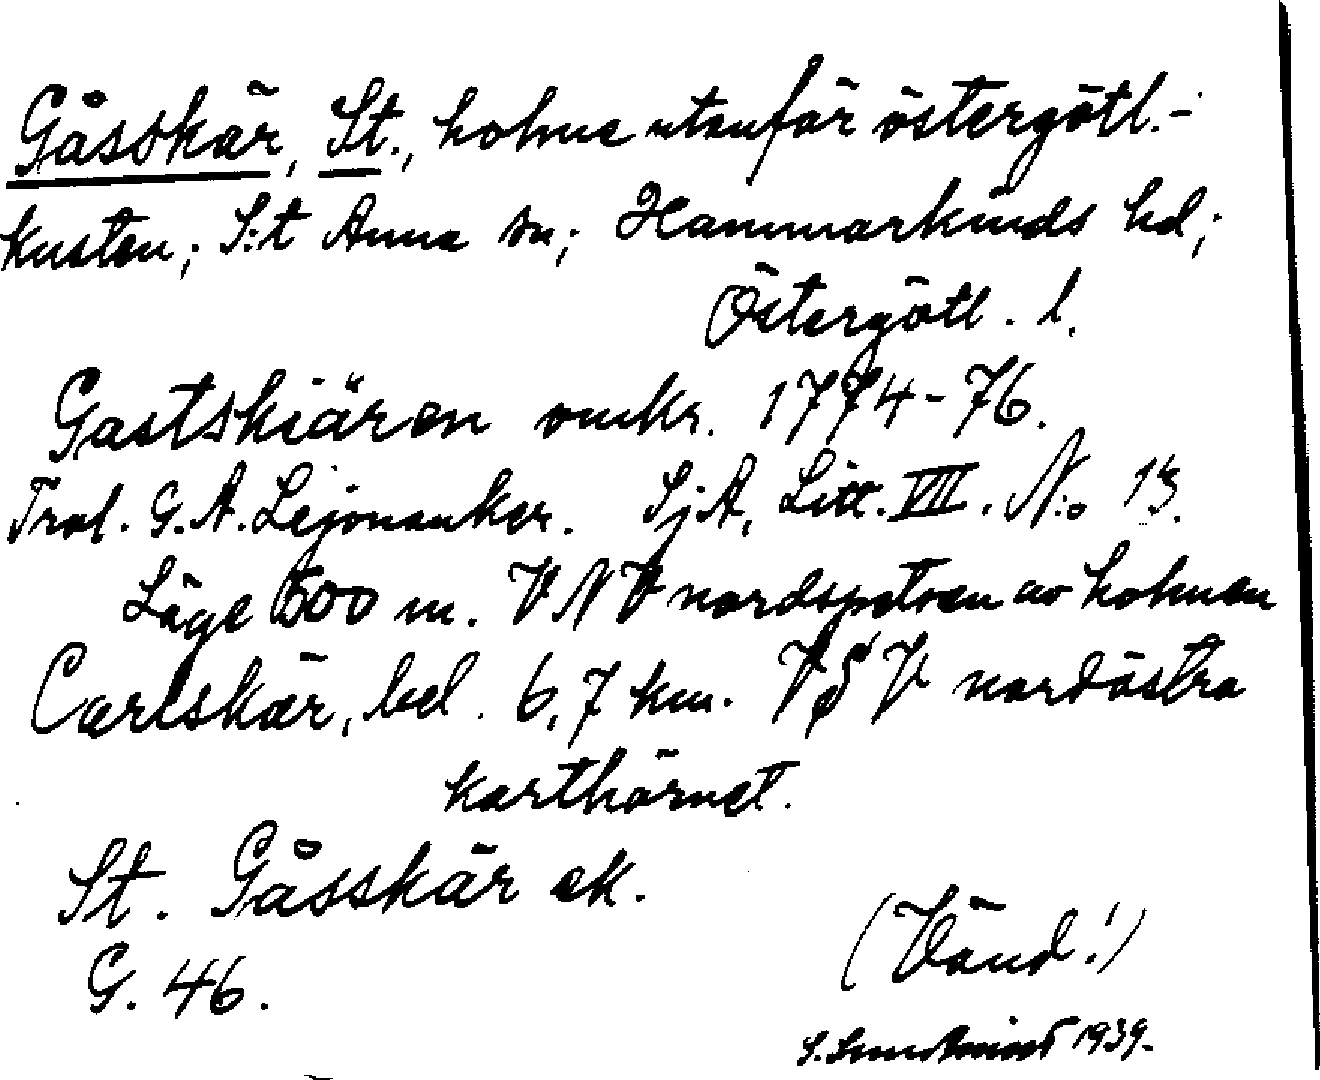 Gåsskär, St., holme utanför östergötl.-
kusten; S:t Anna sn; Hammarkinds hd;
Östergötl. l.
Gastskiären omkr. 1774-76.
Tral. G. A. Lejonanker. SjA, Litt. VII. N:o 13.
Läge 500 m. VNV nordspetsen av holmen
Carlskär, bel. 6,7 km. VSV nordöstra
karthörnet.
St. Gåsskär ek.
G. 46.
(Vänd!)
S. 1939.